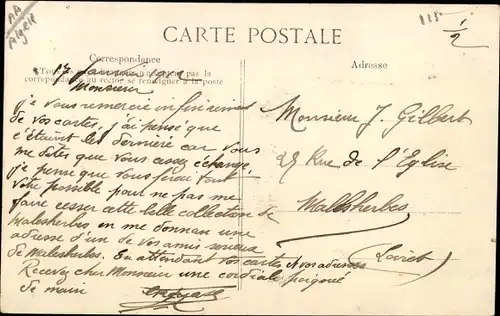 AA
Algérie
118
1/2
CARTE POSTALE
Correspondance
Tous les
pas la
correspondance au recto, se renseigner à la poste
Adresse
17 Janvier
Monsieur
je vous remercie infiniment
de vos cartes, j'ai pensé que
c'étaint les dernière car vous
me dites que vous assez échangé
je pense que vous ferai tout
votre possible pour ne pas me
faire cesser cette belle collection de
Malesherbes en me donnan une
adresse d'un de vos amis sérieux
de Malesherbes. En attendant vos cartes
Recevez cher Monsieur une cordiale poignée
de main
Monsieur J. Gilbert
29 Rue de l'Eglise
Malesherbes
(Loiret)